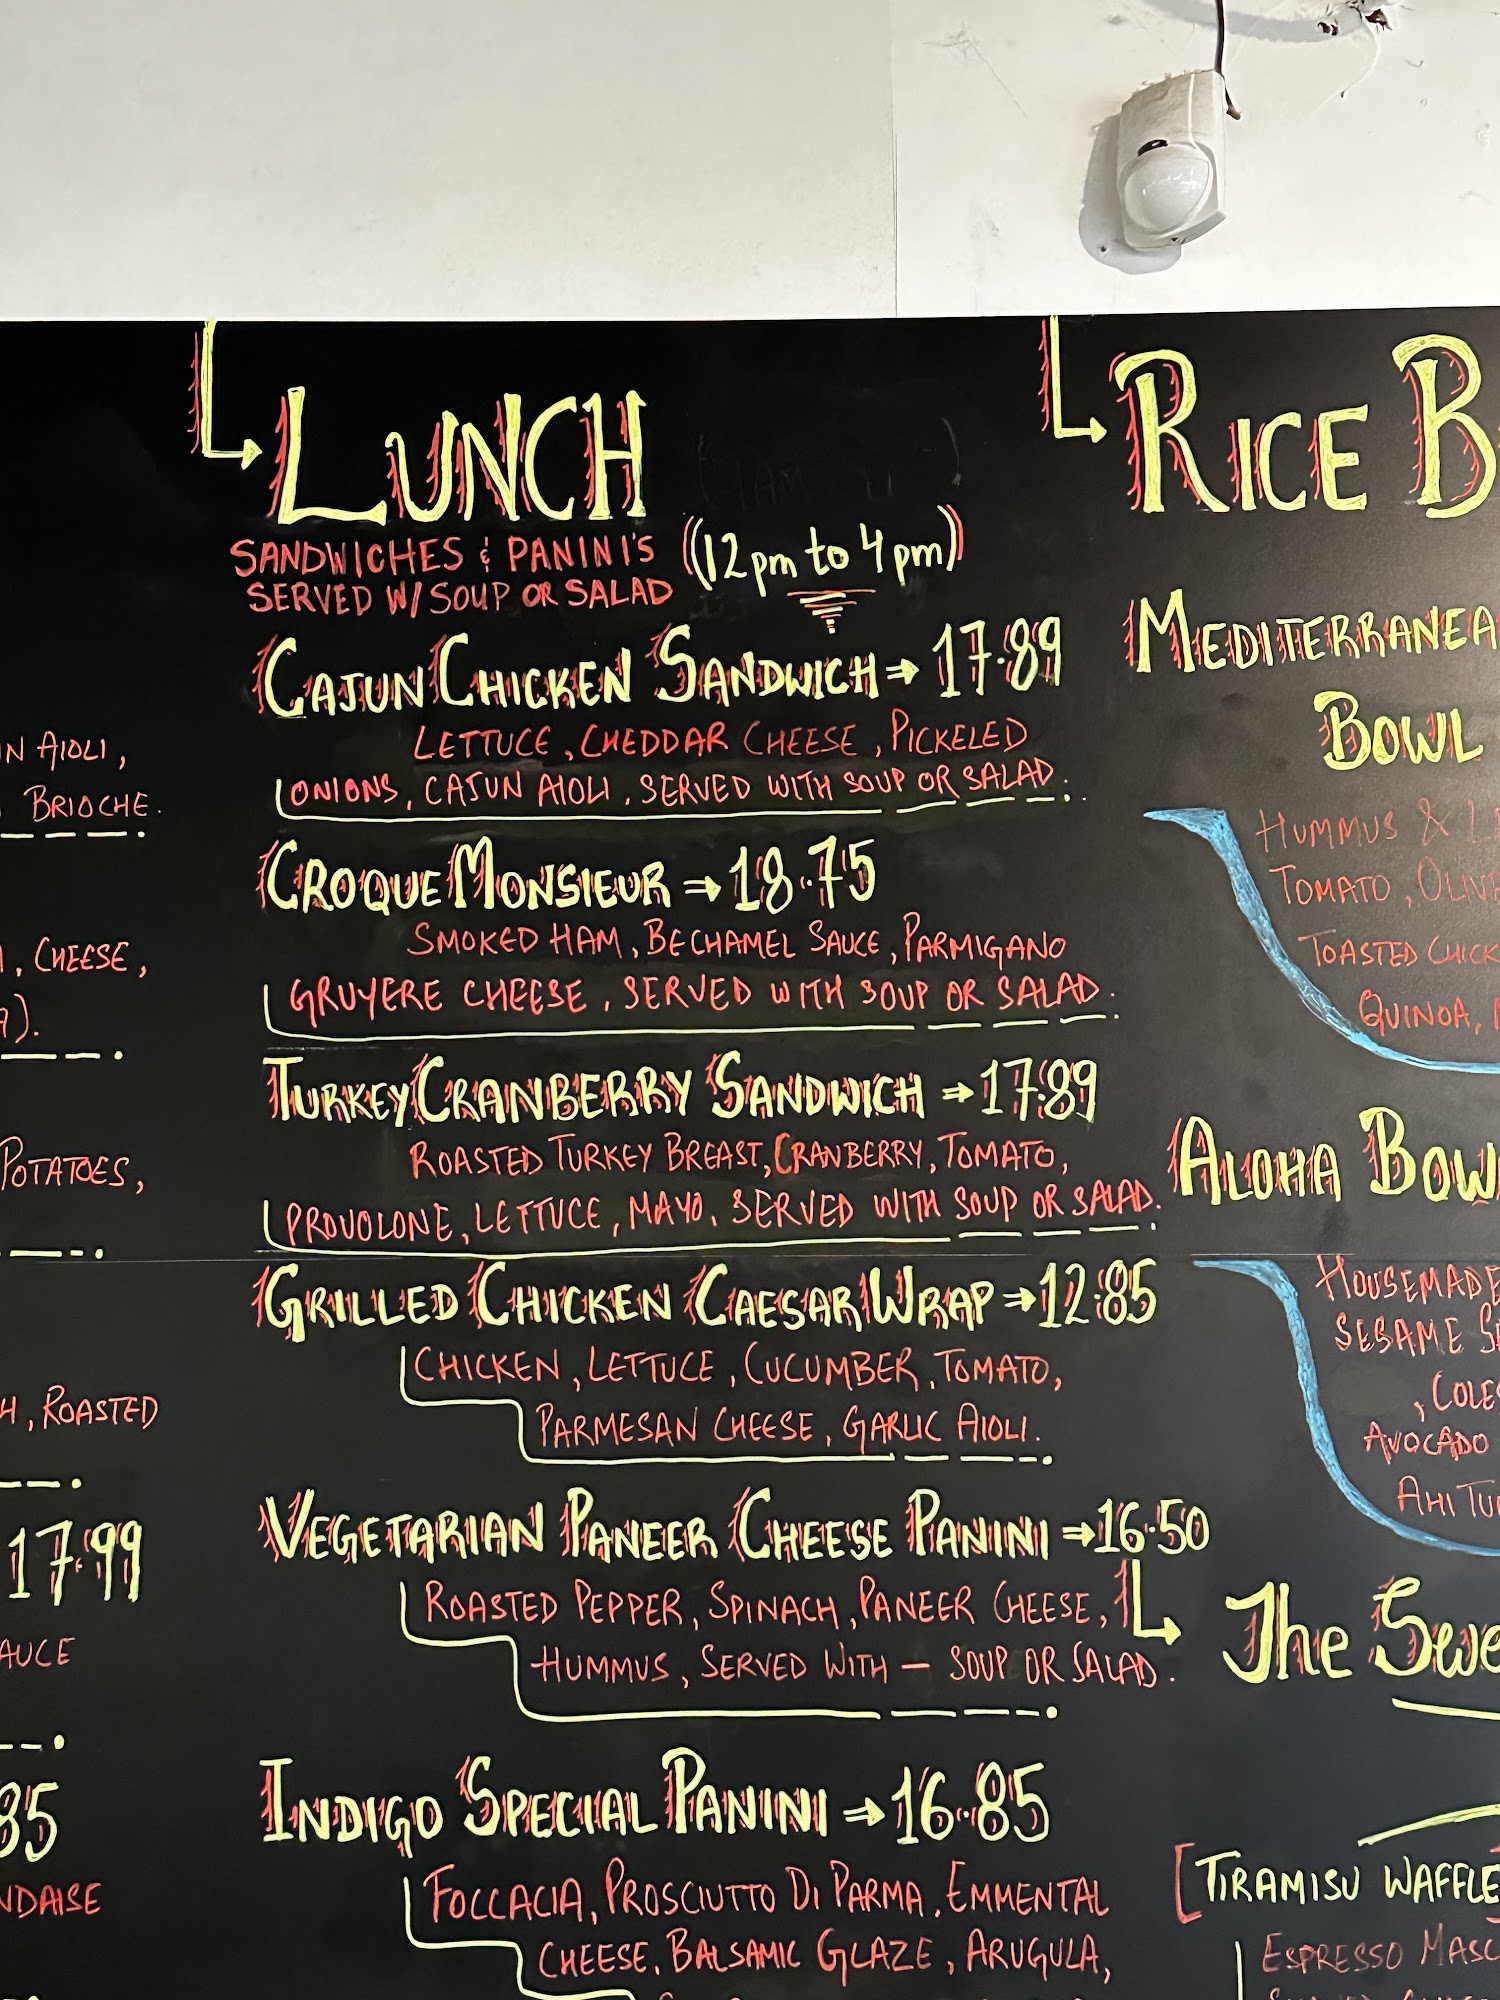 IN AIOLI,
BRIOCHE.
, CHEESE,
9).
POTATOES,
H, ROASTED
17.99
AUCE
85
NDAISE
LUNCH
SANDWICHES & PANINI'S
SERVED W/ SOUP OR SALAD
(12pm to 4pm)
CAJUN CHICKEN SANDWICH ⇒ 17.89
LETTUCE, CHEDDAR CHEESE, PICKELED
ONIONS, CAJUN AIOLI, SERVED WITH SOUP OR SALAD.
CROQUE MONSIEUR ⇒ 18.75
SMOKED HAM, BECHAMEL SAUCE, PARMIGANO
GRUYERE CHEESE, SERVED WITH SOUP OR SALAD.
TURKEY CRANBERRY SANDWICH ⇒ 17.89
ROASTED TURKEY BREAST, CRANBERRY, TOMATO,
PROVOLONE, LETTUCE, MAYO, SERVED WITH SOUP OR SALAD.
GRILLED CHICKEN CAESAR WRAP ⇒ 12.85
CHICKEN, LETTUCE, CUCUMBER, TOMATO,
PARMESAN CHEESE, GARLIC AIOLI.
VEGETARIAN PANEER CHEESE PANINI ⇒ 16.50
ROASTED PEPPER, SPINACH, PANEER CHEESE,
HUMMUS, SERVED WITH — SOUP OR SALAD.
INDIGO SPECIAL PANINI ⇒ 16.85
FOCCACIA, PROSCIUTTO DI PARMA, EMMENTAL
CHEESE, BALSAMIC GLAZE, ARUGULA,
RICE B
MEDITERRANEA
BOWL
HUMMUS & L
TOMATO, OLIVE
TOASTED CHICK
QUINOA,
ALOHA BOW
HOUSEMADE
SESAME SE
, COLES
AVOCADO
AHI TU
The Swe
[TIRAMISU WAFFLE]
ESPRESSO MASC